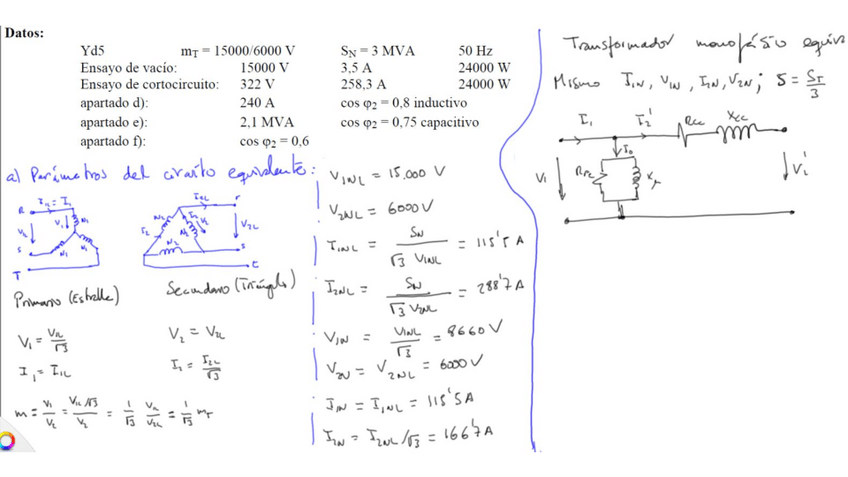 Datos:
Yd5 mT = 15000/6000 V SN = 3 MVA 50 Hz
Ensayo de vacío: 15000 V 3,5 A 24000 W
Ensayo de cortocircuito: 322 V 258,3 A 24000 W
apartado d): 240 A cos φ2 = 0,8 inductivo
apartado e): 2,1 MVA cos φ2 = 0,75 capacitivo
apartado f): cos φ2 = 0,6
a) Parámetros del circuito equivalente:
R I1L = I1
V1 N1
VL
S N1 N1
T
Primario (Estrella)
V1 = V1L/√3
I1 = I1L
I2L r
N2 I2 V2 V2L
N2 s
t
Secundario (Triángulo)
V2 = V2L
I2 = I2L/√3
m = V1/V2 = V1L/√3 / V2 = 1/√3 V1L/V2L = 1/√3 mT
V1NL = 15.000 V
V2NL = 6000 V
I1NL = SN / √3 V1NL = 115'5 A
I2NL = SN / √3 V2NL = 288'7 A
V1N = V1NL/√3 = 8660 V
V2N = V2NL = 6000 V
I1N = I1NL = 115'5 A
I2N = I2NL/√3 = 166'7 A
Transformador monofásico equiv
Mismo I1N, V1N, I2N, V2N; S = ST/3
I1 I2' Rcc Xcc
I0
V1 RFe Xμ V2'